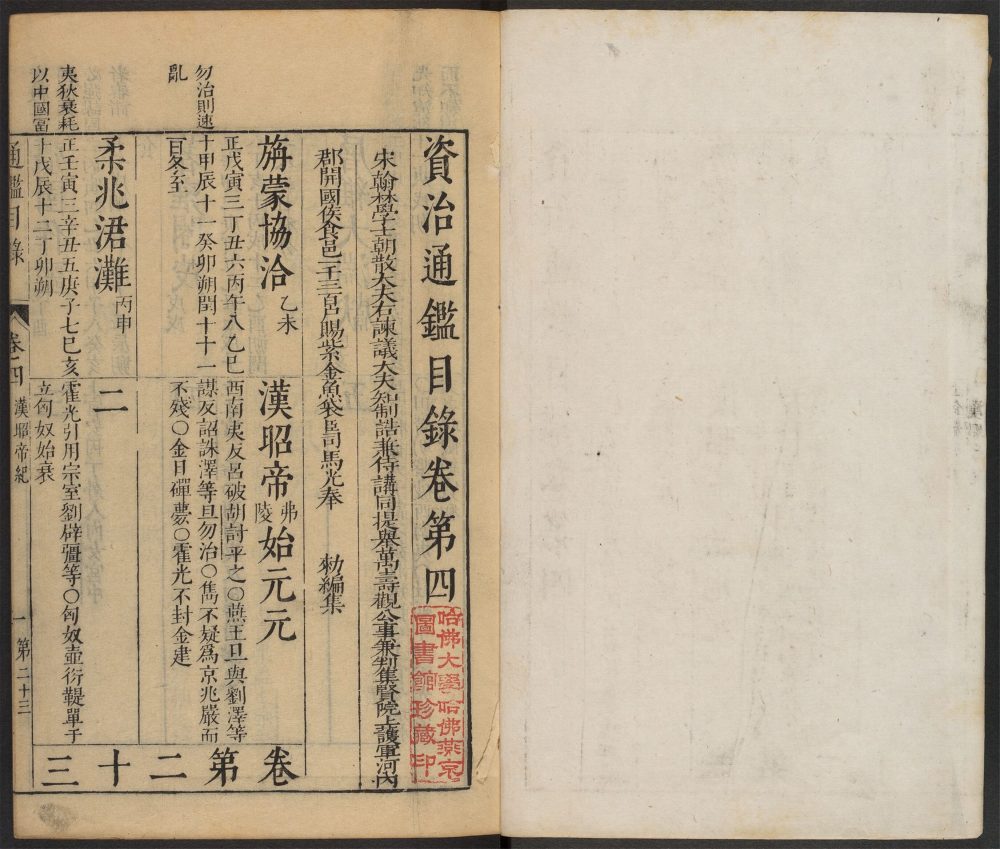 資治通鑑目錄卷第四
哈佛大學哈佛燕京
圖書館珍藏印
宋翰林學士朝散大夫右諫議大夫知制誥兼侍講同提舉萬壽觀公事兼判集賢院上護軍河內
郡開國侯食邑一千三百戶賜紫金魚袋臣司馬光奉 勑編集
旃蒙協洽 乙未
漢昭帝 弗陵 始元元
正戊寅三丁丑六丙午八乙巳
勿治則速
十甲辰十一癸卯朔閏十十一
亂
百冬至
西南夷反呂破胡討平之〇燕王旦與劉澤等
謀反詔誅澤等旦勿治〇雋不疑爲京兆嚴而
不殘〇金日磾薨〇霍光不封金建
柔兆涒灘 丙申
二
夷狄衰耗
正壬寅三辛丑五庚子七巳亥
以中國冨
十戊辰十二丁卯朔
霍光引用宗室劉辟彊等〇匈奴壺衍鞮單于
立匈奴始衰
卷第二十三
通鑑目錄
卷四 漢昭帝紀
一 第二十三